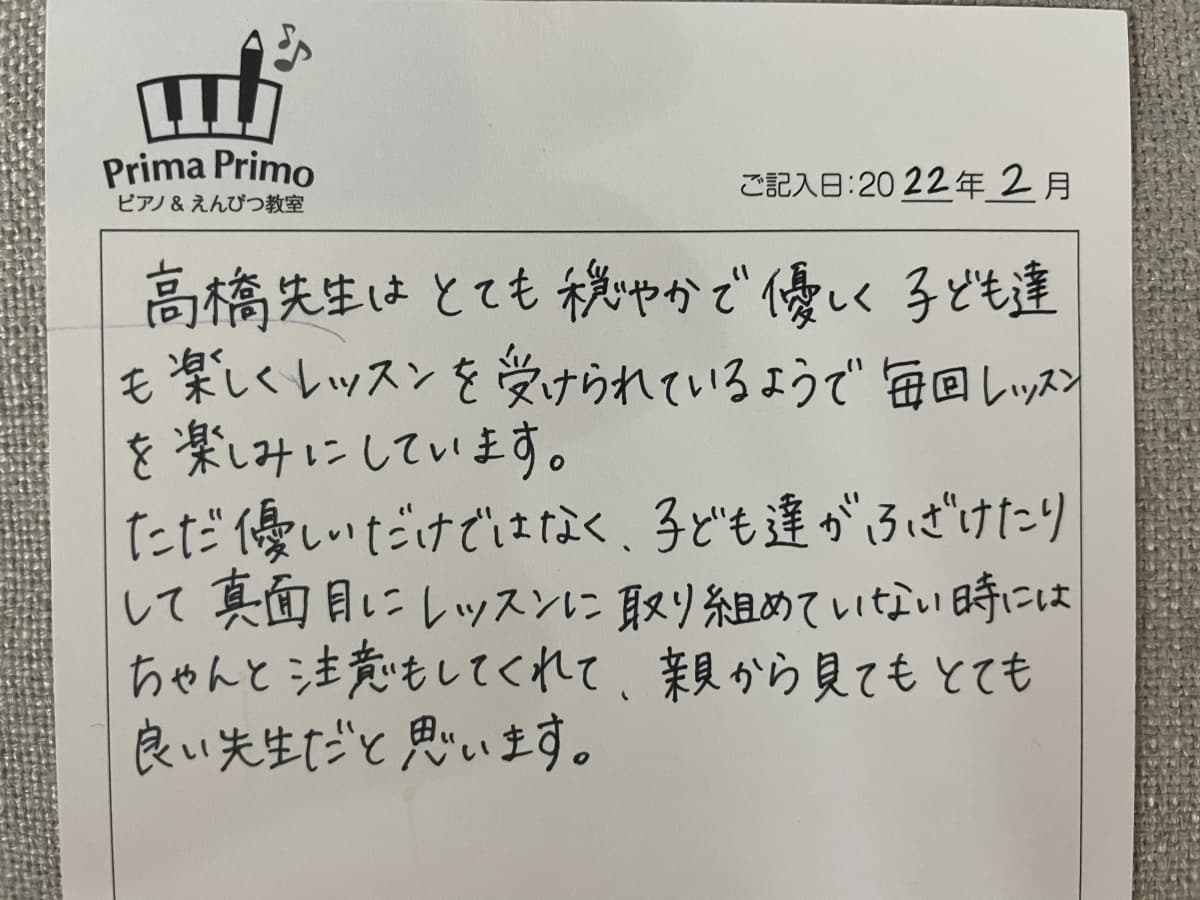 Prima Primo
ピアノ & えんぴつ教室
ご記入日:2022年2月
高橋先生は とても 穏やかで 優しく 子ども達
も 楽しくレッスンを 受けられているようで 毎回レッスン
を 楽しみにしています。
ただ優しいだけではなく、子ども達がふざけたり
して 真面目にレッスンに 取り組めていない時には
ちゃんと 注意もしてくれて、親から見てもとても
良い先生だと 思います。